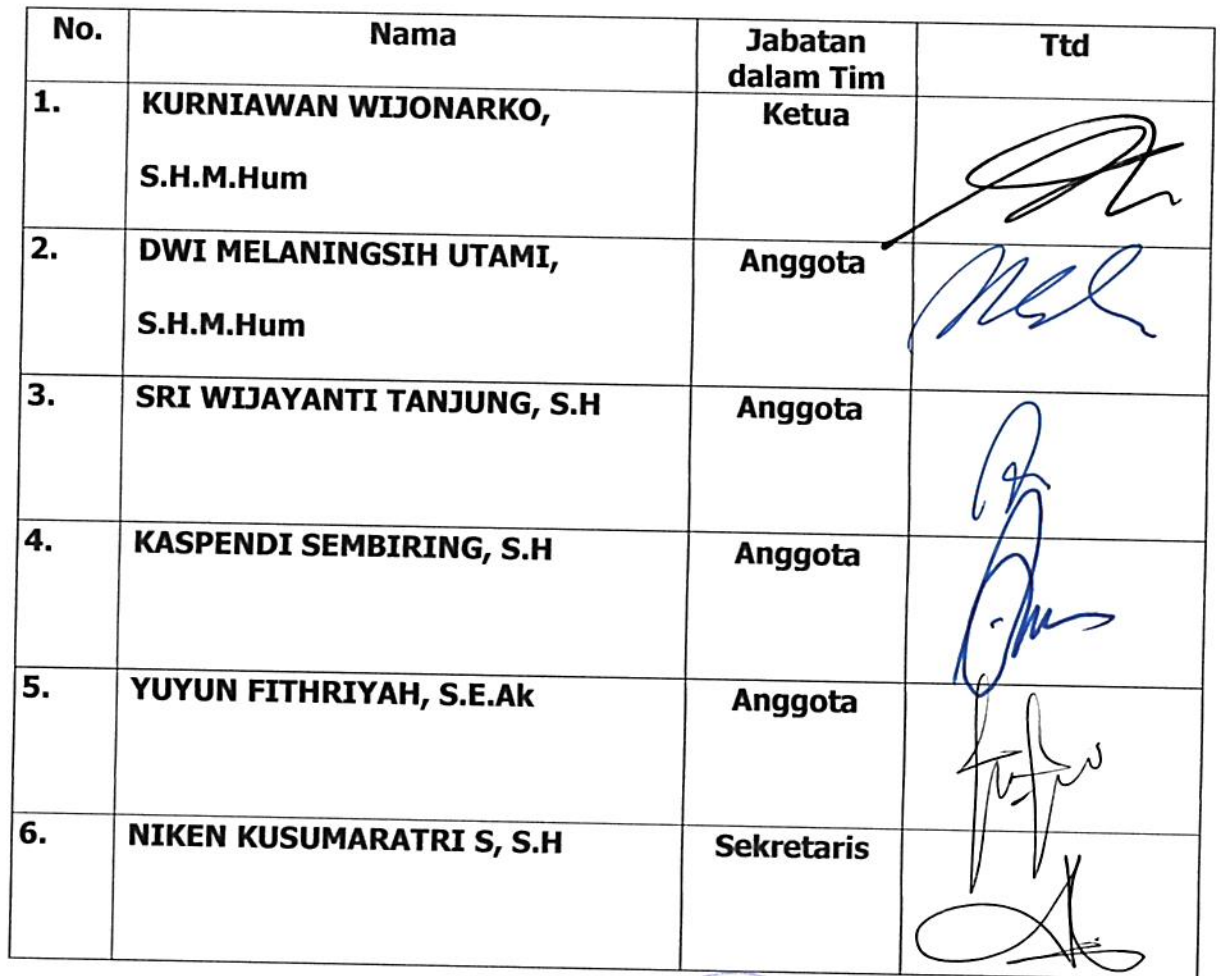 No. Nama Jabatan dalam Tim Ttd
1. KURNIAWAN WIJONARKO, Ketua
S.H.M.Hum
2. DWI MELANINGSIH UTAMI, Anggota
S.H.M.Hum
3. SRI WIJAYANTI TANJUNG, S.H Anggota
4. KASPENDI SEMBIRING, S.H Anggota
5. YUYUN FITHRIYAH, S.E.Ak Anggota
6. NIKEN KUSUMARATRI S, S.H Sekretaris